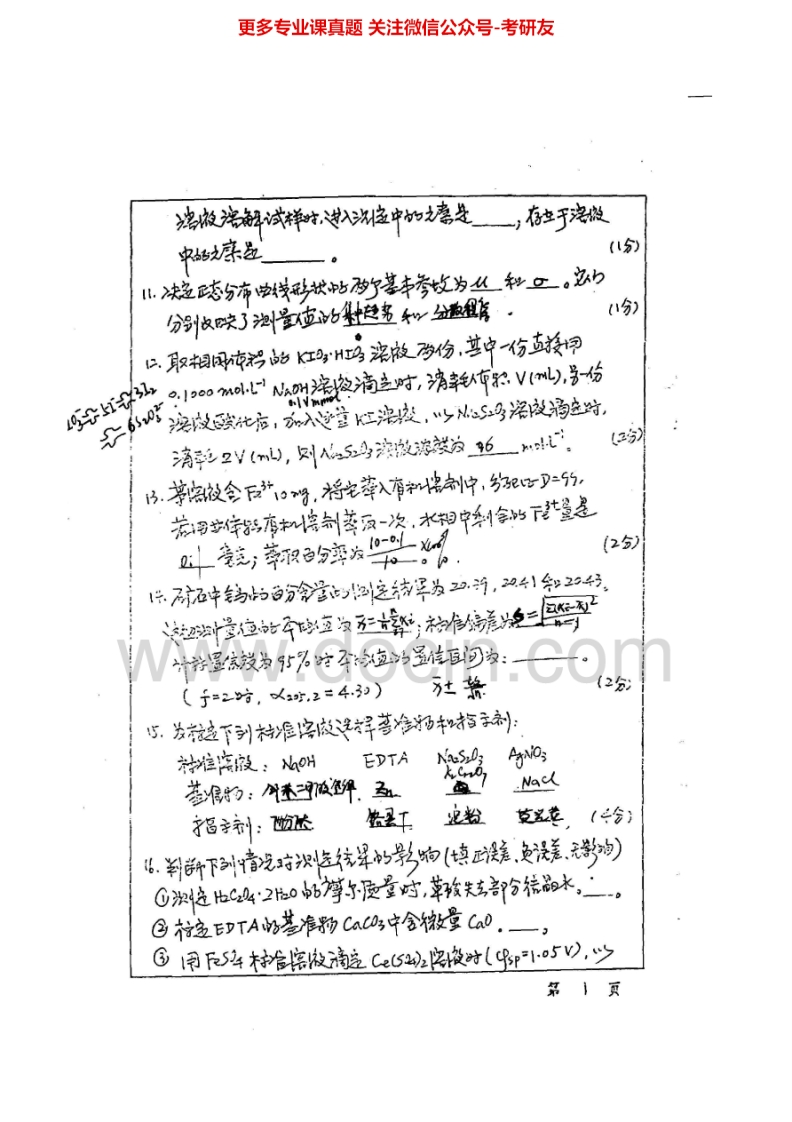 更多专业课真题 关注微信公众号-考研友
溶液溶解试样时,进入沉淀中的元素是____;存在于溶液
中的元素是____。 (1分)
11. 决定正态分布曲线形状的两个基本参数为 μ 和 σ 。它们
分别反映了测量值的集中趋势和分散程度。 (1分)
12. 取相同体积的 KIO3·HIO3 溶液两份,其中一份直接用
0.1000 mol·L-1 NaOH溶液滴定时,消耗体积 V(mL),另一份
0.1V mmol
溶液酸化后,加入过量KI溶液,以Na2S2O3溶液滴定时,
消耗2V(mL),则Na2S2O3溶液浓度为 0.6 mol·L-1。 (2分)
13. 某溶液含Fe3+10mg,将它萃入有机溶剂中,分配比D=99,
若用等体积有机溶剂萃取一次,水相中剩余的Fe3+量是
0.1 毫克;萃取百分率为 10-0.1/10 ×100% %。 (2分)
14. 矿石中钨的百分含量的测定结果为20.39, 20.41和20.43。
这组测量值的平均值为
;标准偏差为S=
计算置信度为95%时平均值的置信区间为:____。
(f=2时, α2.05,2=4.30) (2分)
www.docin.com
15. 为标定下列标准溶液选择基准物和指示剂:
标准溶液: NaOH EDTA Na2S2O3 AgNO3
K2Cr2O7
基准物: 邻苯二甲酸氢钾 Zn NaCl
指示剂: 酚酞 铬黑T 淀粉 (4分)
16. 判断下列情况对测定结果的影响(填正误差、负误差、无影响)
①测定H2C2O4·2H2O的摩尔质量时,草酸失去部分结晶水。____。
②标定EDTA的基准物CaCO3中含微量CaO。____。
③用FeSO4标准溶液滴定Ce(SO4)2溶液时(φsp=1.05V),以
第 1 页